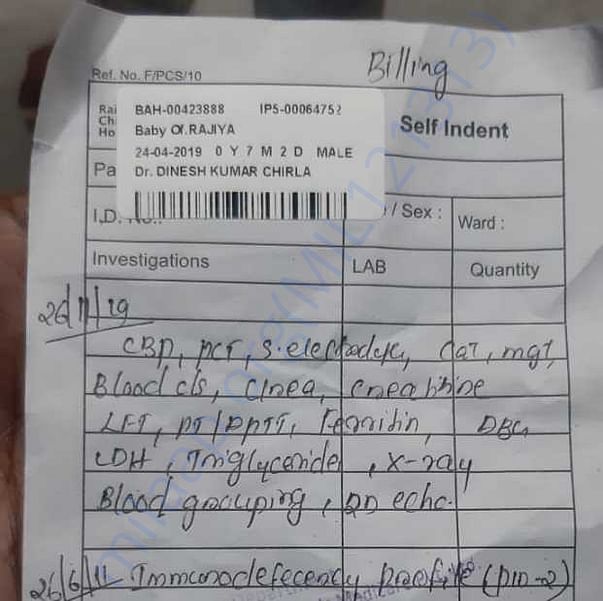 Billing
Ref. No. F/PCS/10
BAH-00423888 IP5-00064752
Baby Of.RAJIYA
24-04-2019 0 Y 7 M 2 D MALE
Dr. DINESH KUMAR CHIRLA
Rai
Ch
Ho
Self Indent
Pa
I.D. No.:
/ Sex :
Ward :
Investigations LAB Quantity
26/11/19
CBP, PCT, S.electrolyte, Ca+, mg+,
Blood c/s, Urea, Creatinine
LFT, PT/APTT, Ferritin,
LDH, Triglyceride, X-ray
Blood grouping, 2D echo.
Immunodefecency Profile (PID-2)